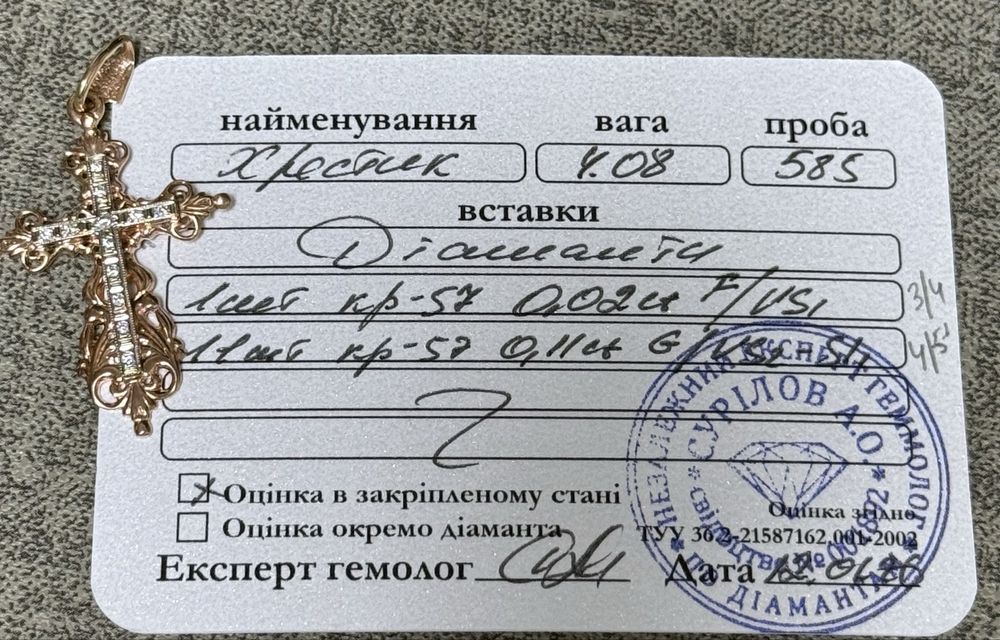 найменування вага проба
Хрестик 4.08 585
вставки
Діаманти
1шт кр-57 0,02ct F/VS1 3/4
11шт кр-57 0,11ct G VS2 SI1 4/5
Оцінка в закріпленому стані
Оцінка окремо діаманта
Оцінка згідно
ТУУ 36.2-21587162,001-2002
Експерт гемолог Дата
НЕЗАЛЕЖНИЙ ЕКСПЕРТ ГЕММОЛОГ
СУРІЛОВ А.О
ДІАМАНТА